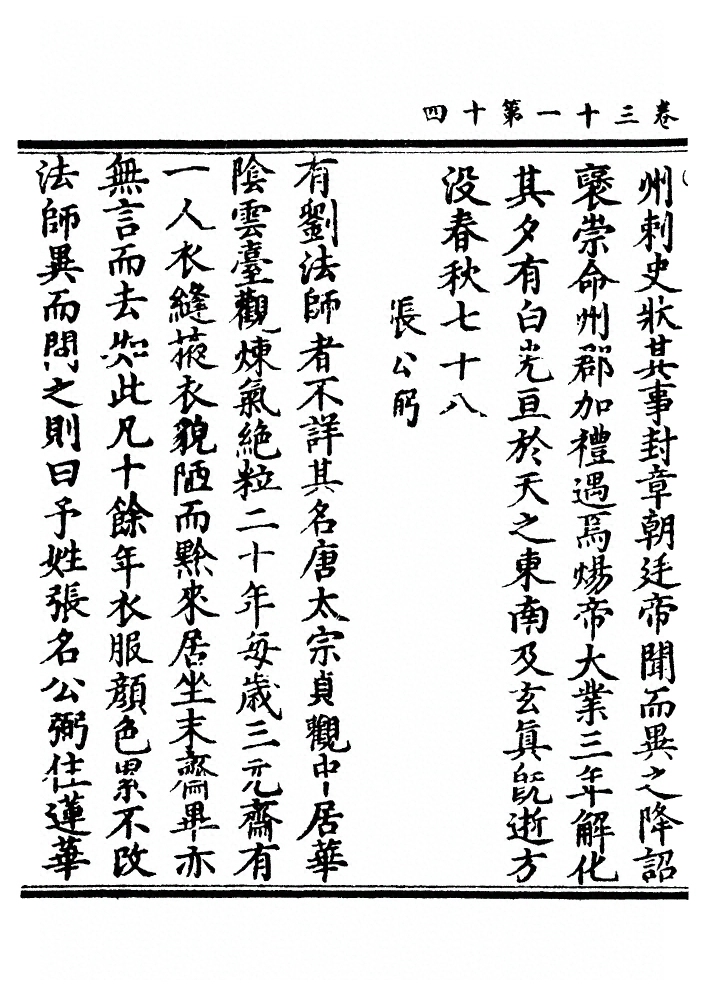 卷三十一第十四
州刺史狀其事封章朝廷帝聞而異之降詔
襃崇命州郡加禮遇焉煬帝大業三年解化
其夕有白光亘於天之東南及玄真既逝方
没春秋七十八
張公弼
有劉法師者不詳其名唐太宗貞觀中居華
陰雲臺觀煉氣絶粒二十年每歲三元齋有
一人衣縫掖衣貌陋而黲來居坐末齋畢亦
無言而去如此凡十餘年衣服顏色累不改
法師異而問之則曰予姓張名公弼住蓮華